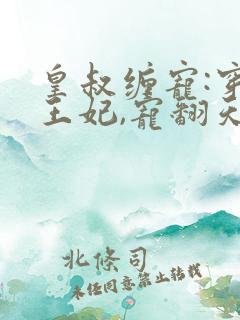 皇叔缠宠:穿
王妃,宠翻天
北條司
未经同意禁止转载